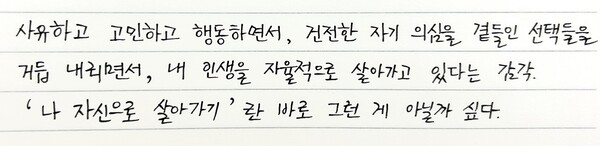 사유하고 고민하고 행동하면서, 건전한 자기 의심을 곁들인 선택들을
거듭 내리면서, 내 인생을 자율적으로 살아가고 있다는 감각.
'나 자신으로 살아가기'란 바로 그런 게 아닐까 싶다.